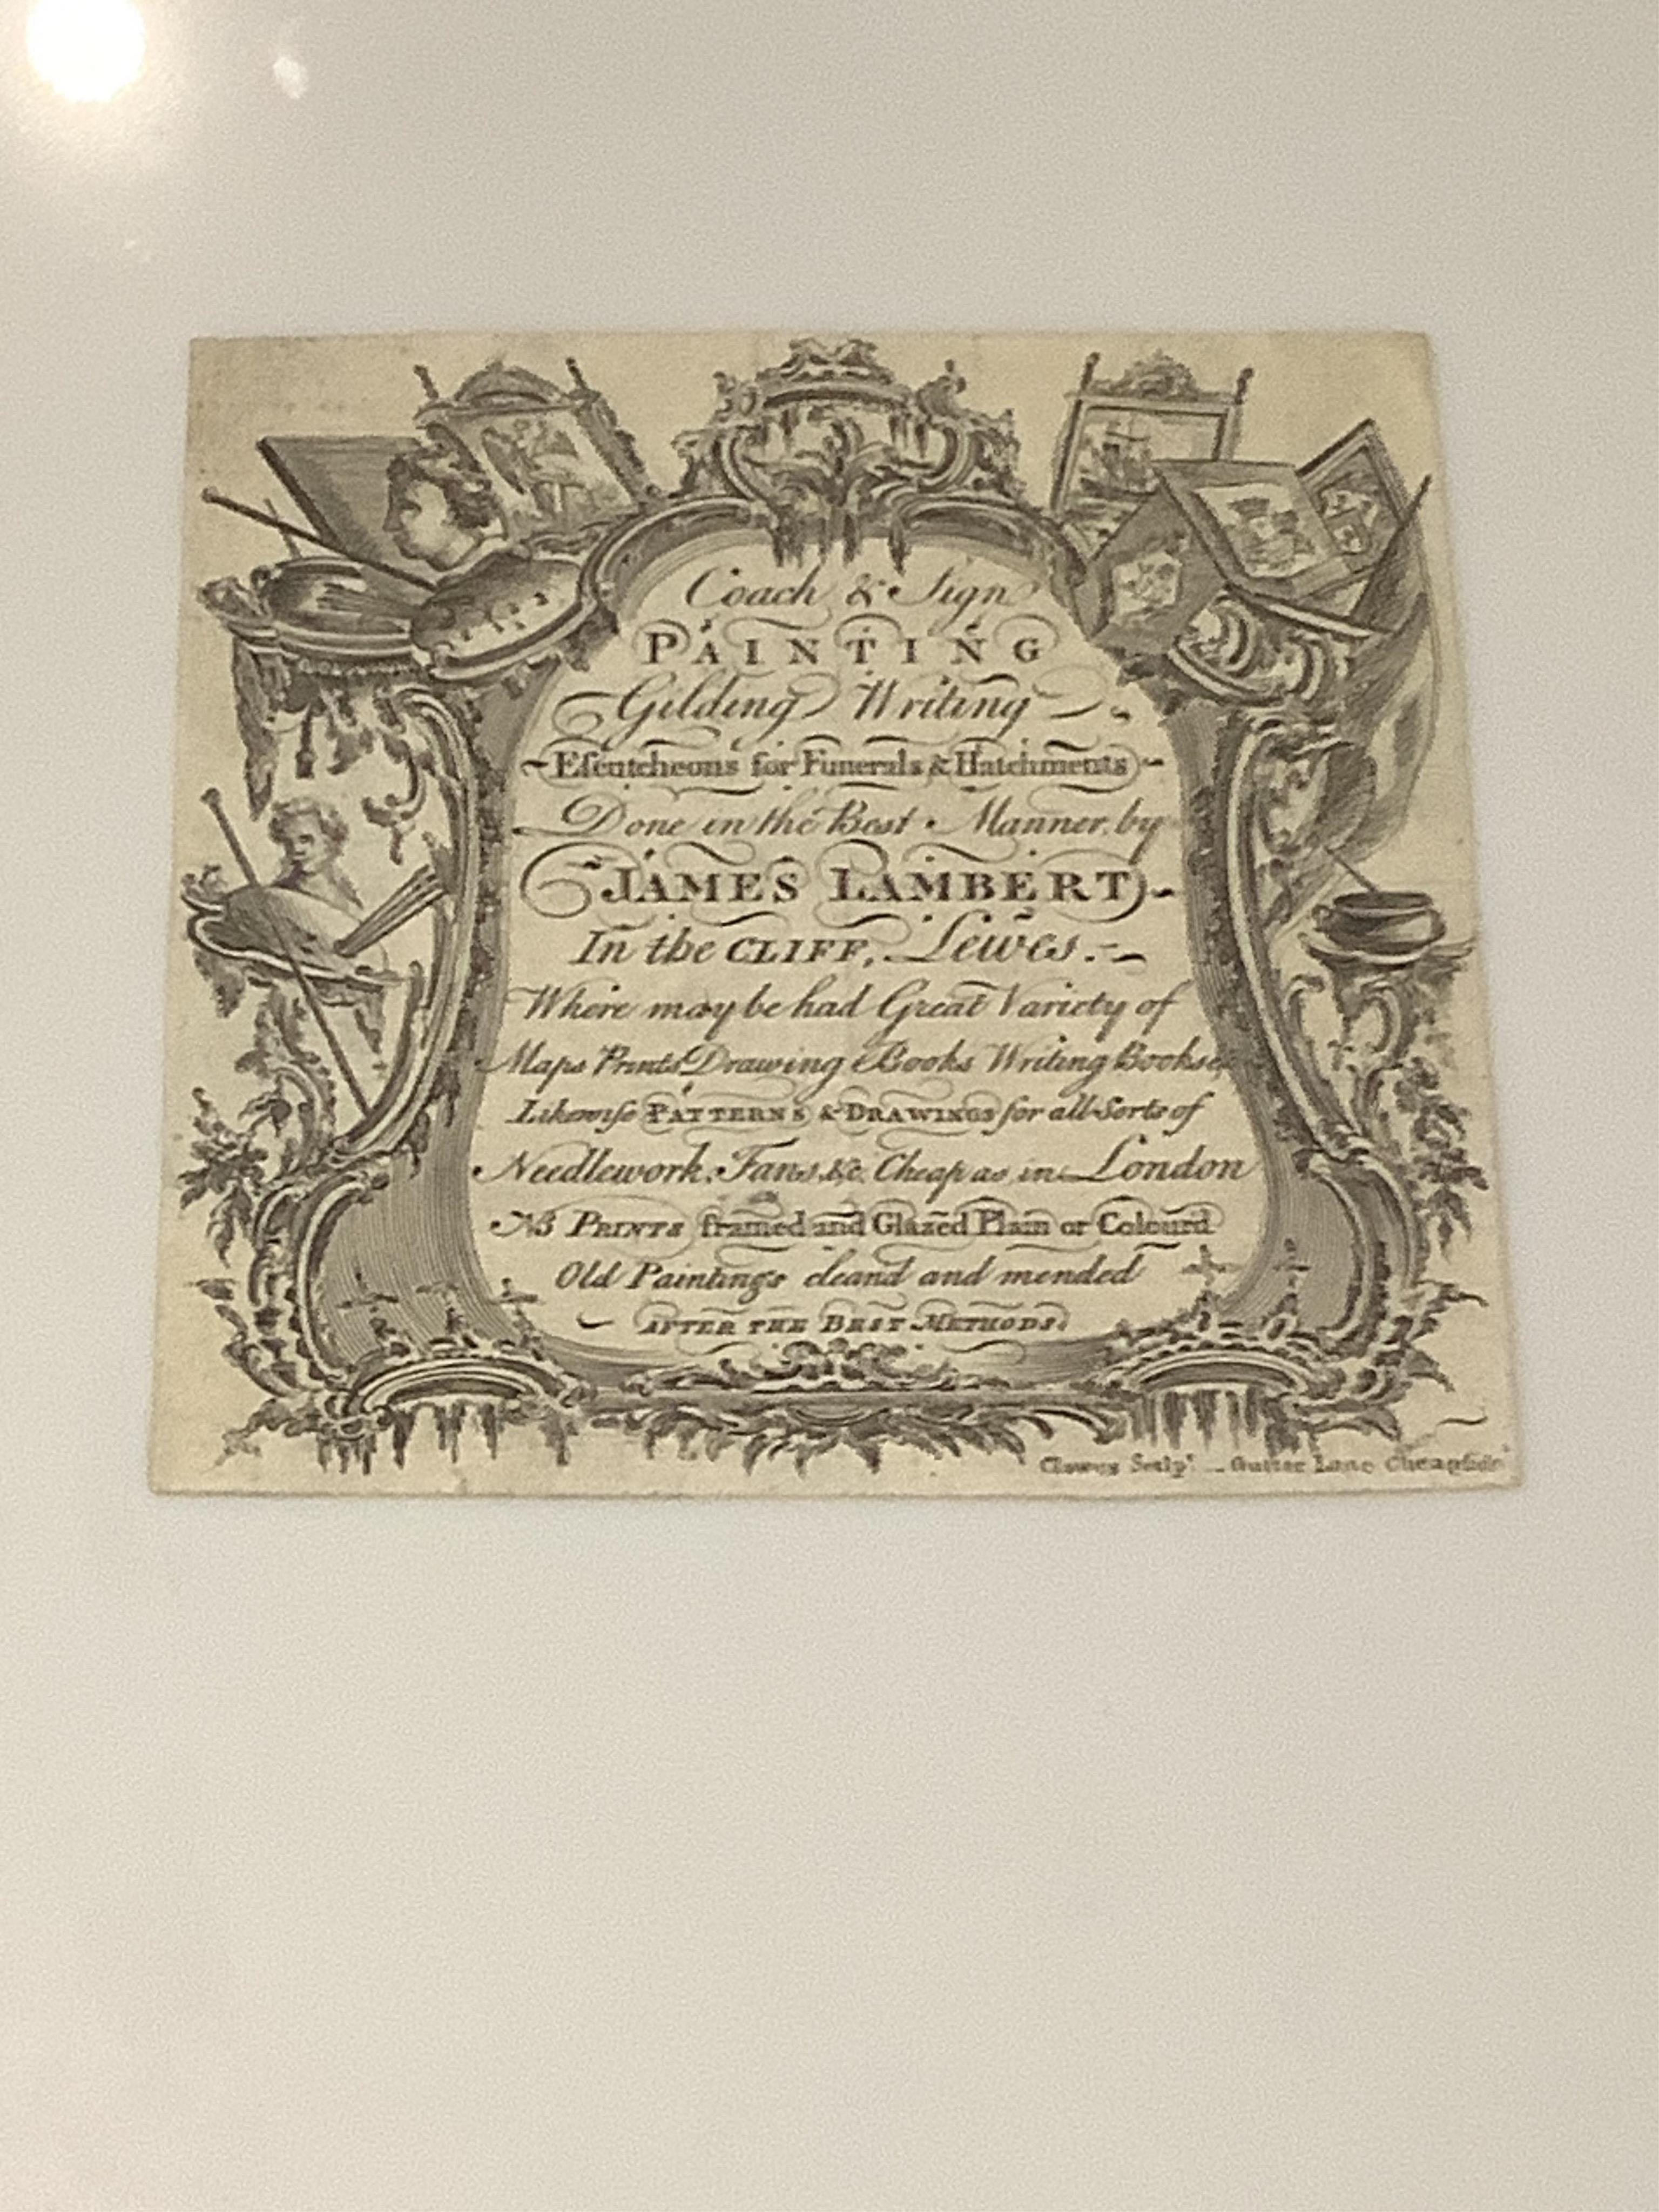 Coach & Sign
PAINTING
Gilding Writing
Eſcutcheons for Funerals & Hatchments
Done in the Best Manner, by
JAMES LAMBERT
In the CLIFF, Lewes.
Where may be had Great Variety of
Maps Prints Drawing Books Writing Books &c
Likewiſe PATTERNS & DRAWINGS for all Sorts of
Needlework, Fans, &c. Cheap as in London
NB PRINTS framed and Glazed Plain or Colourd
Old Paintings cleand and mended
AFTER THE BEST METHODS.
Clowes Sculpt. Gutter Lane Cheapſide